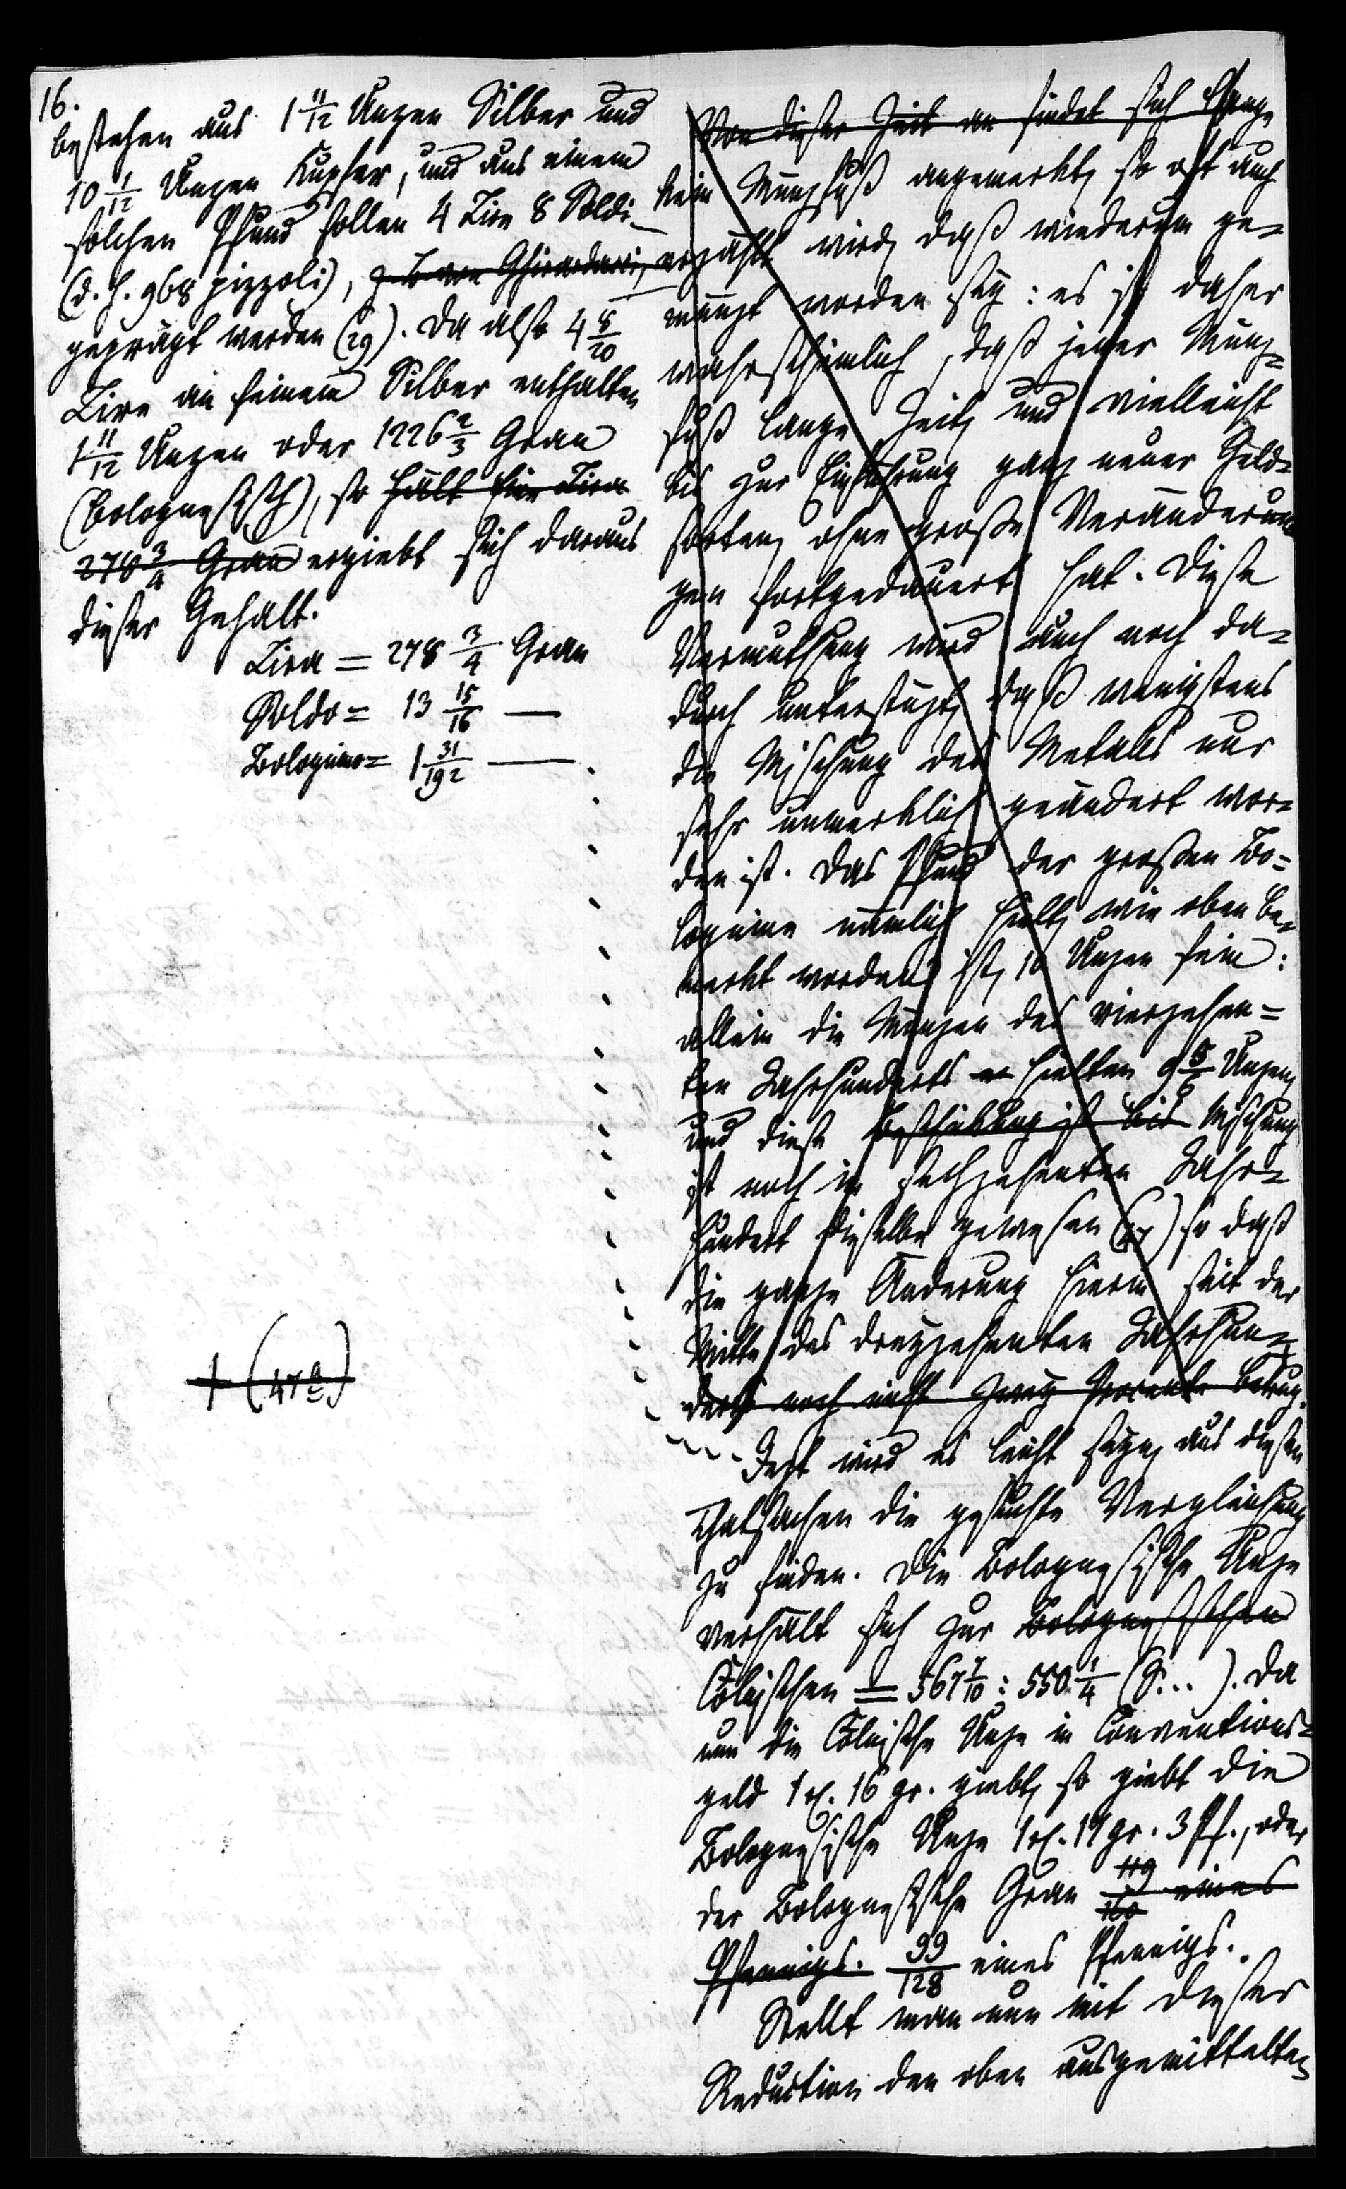 16.
bestehen aus 1 11/12 Unzen Silber und
10 1/12 Unzen Kupfer, und aus einem
solchen Pfund sollen 4 Lire 8 Soldi
(d. h. 968 pizzoli), z. B. von Ghirardacci,
geprägt werden (29). Da also 4 8/20
Lire an feinem Silber enthalten
1 11/12 Unzen oder 1226 2/3 Gran
(bolognesisch), so hält eine Lira
278 3/4 Gran ergiebt sich daraus
dieser Gehalt:
Lira = 278 3/4 Gran
Soldo = 13 15/16 —
Bolognino = 1 31/192 —
+ (47a)
Von dieser Zeit an findet sich lange
kein Münzfuß angemerkt, so oft auch
erzählt wird, daß wiederum ge-
münzt worden sey: es ist daher
wahrscheinlich, daß jener Münz-
fuß lange Zeit, und vielleicht
bis zur Einführung ganz neuer Geld-
sorten, ohne große Veränderun-
gen fortgedauert hat. Diese
Vermuthung wird auch noch da-
durch unterstüzt, daß wenigstens
die Mischung des Metalls nur
sehr unmerklich geändert wor-
den ist. Das Pfund der großen Bo-
lognine nämlich hielt, wie oben be-
merkt worden ist, 10 Unzen fein:
allein die Münzen des vierzehen-
ten Jahrhunderts hielten 9 5/6 Unzen,
und diese Beschickung ist bis Mischung
ist noch im sechzehenten Jahr-
hundert dieselbe gewesen so daß
die ganze Änderung hierin seit der
Mitte des dreyzehenten Jahrhun-
derts noch nicht zwey Procente betrug.
Jezt wird es leicht seyn, aus diesen
Thatsachen die gesuchte Vergleichung
zu finden. Die Bolognesische Unze
verhält sich zur Bolognesischen
Cölnischen = 567 7/10 : 550 1/4 (S. . . ). Da
nun die Cölnische Unze in Conventions-
geld 1 rl. 16 gr. giebt, so giebt die
Bolognesische Unze 1 rl. 17 gr. 3 Pf., oder
der Bolognesische Gran 119/160 eines
Pfennigs. 99/128 eines Pfennigs.
Stellt man nun mit dieser
Reduction den oben ausgemittelten